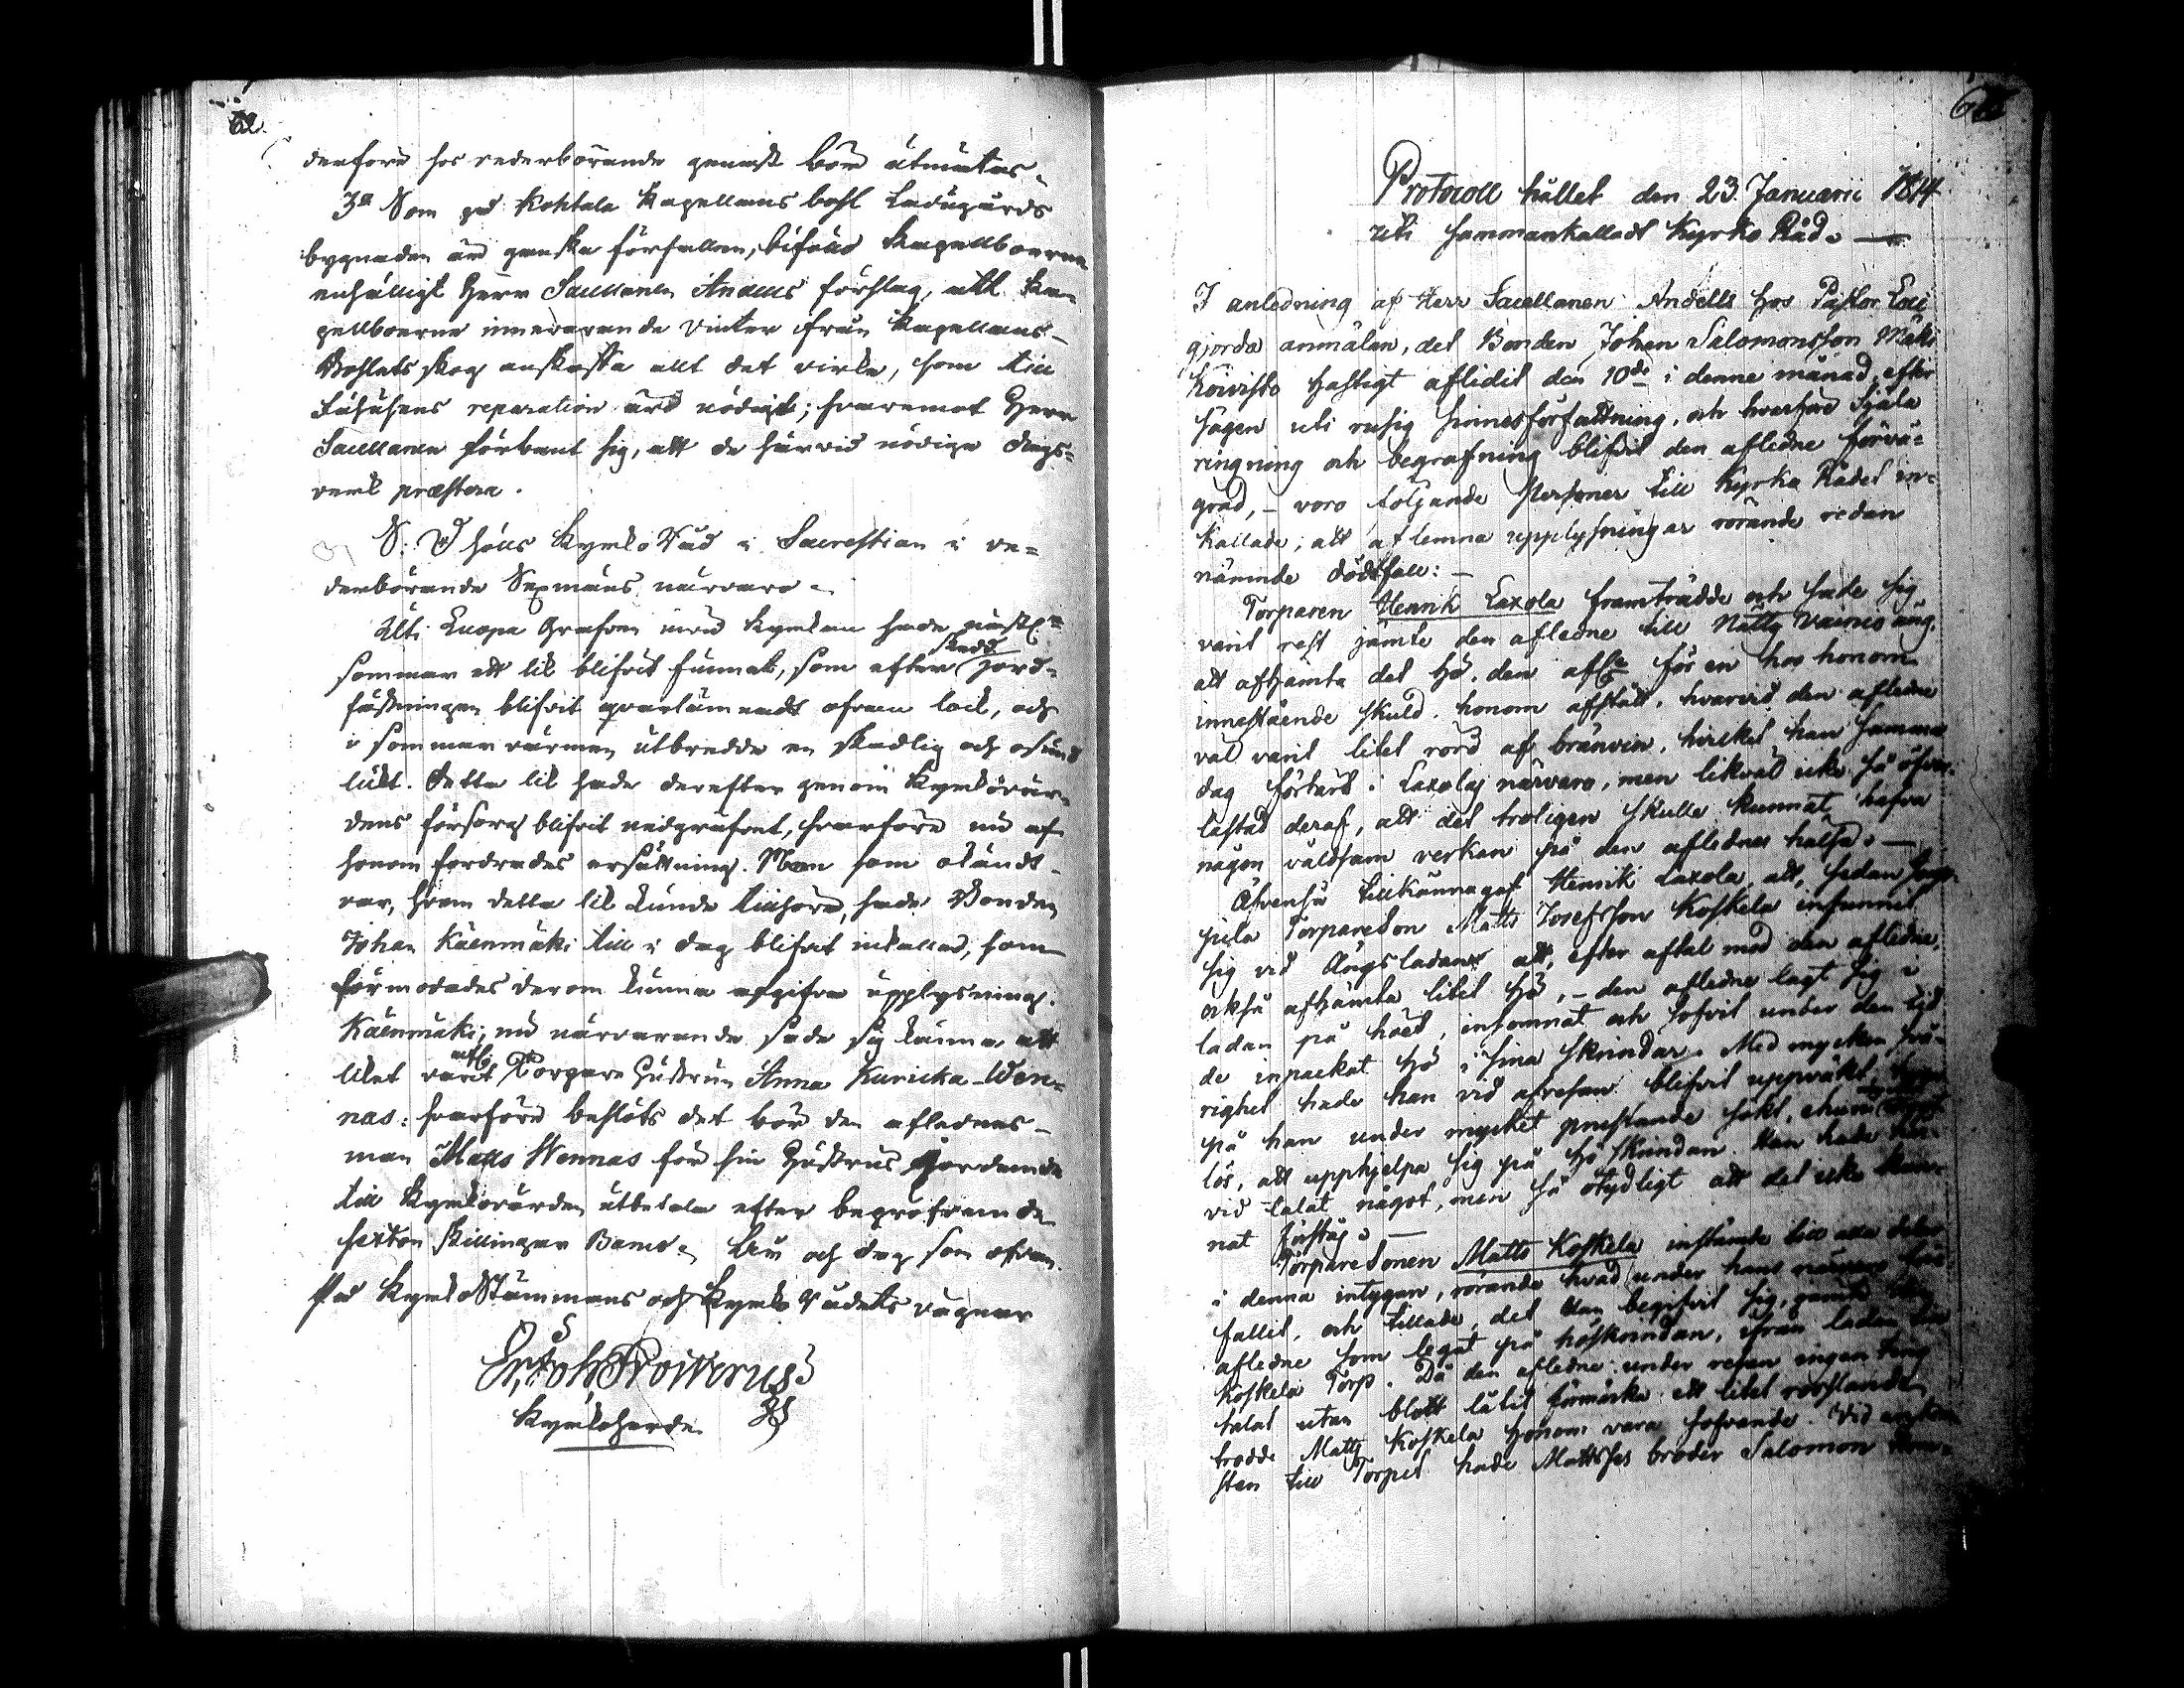 62.
derföre hos vederbörande genast bör utmätas.
3o Som på Kohtala Kapellans bohl Ladugårds
bygnaden är ganska förfallen, biföllo Kapellboerne
enhälligt Herr Sacellanen Andells förslag, att Ka-
pellboerne innevarande vinter ifrån Kapellans-
Bohlets skog anskaffa allt det virke, som till
Fähusens reparation äro nödigt; hvaremot Herr
Sacellanen förbant sig, att de härvid nödiga dags-
verk præstera.
S. D. hölls Kyrko Råd i Sacrestian i ve-
derbörande Sexmäns närvaro.
Uti Kyrkan hade
skedd
sommar ett lik blifvit funnet, som efter jord-
fästningen blifvit qvarlämnadt ofvan lock, och
i sommar värmen utbredde en skadlig och osund
lukt. Detta lik hade derefter genom Kyrkovär-
dens försorg blifvit nedgräfvet, hvarföre nu af
honom fordrades ersättning. Men som okändt
var, hvem detta lik kunde tillhöra, hade Bonden
Johan Käenmäki till i dag blifvit inkallad, som
förmodades derom kunna afgifva upplysning.
Käenmäki, nu närvarande sade sig känna att
afl.
liket varit Torpare Hustrun Anna Kuricka-Wen-
nas: hvarföre beslöts det bör den aflednas
man Matts Wennas för sin Hustrus
till Kyrkovärden utbetala efter begrafvande
sexton skillingar Banco. År och dag som ofvan.
På Kyrko Stämmans och Kyrko Rådets vägnar
Kyrkoherde
Protocoll hållet den 23 Januarii 1814
uti sammankalladt Kyrko Råd.
I anledning af Herr Sacellanen Andells hos Pastor Loci
gjorda anmälan, det Bonden Johan Salomonsson Mäki
Koivisto hastigt aflidit den 10de i denne månad, efter
sägen uti rusig sinnesförfattning, och hvarföre Själa
ringning och begrafning blifvit den afledne förvä-
grad, – voro följande personer till Kyrko Rådet in-
kallade, att aflemna upplysningar rörande redan
nämnde dödsfall: –
Torparen Henrik Laxola framträdde och sade sig
varit rest jämte den afledne till Nätty Vainio äng,
att afhämta det hö, den afl. för en hos honom
innestående skuld, honom afstått, hvarvid den afledne
väl varit litet rörd af bränvin, hvilket han samma
dag förtärt i Laxolas närvaro, men likväl icke så öfver-
lastad deraf, att det troligen skulle kunnat hafva
någon våldsam verkan på den aflednes hälsa. –
Äfvenså tillkännagaf Henrik Laxola, att, sedan
Torpare Son Matts Josefsson Koskela infunnit
sig vid Ängsladan att, efter aftal med den afledne,
också afhämta litet hö, – den afledne lagt sig i
ladan på höet, insomnat och sofvit under den tid
de inpackat hö i sina skrindor. Med mycken svå-
righet hade han vid afresan blifvit uppväkt,
på han under mycket pustande sökt, ehuru
lös, att upphjelpa sig på hö skrindan. Han hade här-
vid talat något, men så otydligt att det icke kun-
nat förstås. –
Torpare Sonen Matts Koskela instämde till alla delar
i denna intygan, rörande hvad under hans närvaro före
fallit, och tillade, det han begifvit sig, jämte den
afledne som legat på höskrindan, ifrån ladan till
Koskela Torp. Då den afledne under resan ingen ting
talat utan blott låtit förmärka ett litet rosslande,
trodde Matts Koskela honom vara sofvande. Vid ankom-
sten till Torpet hade Mattsses broder Salomon